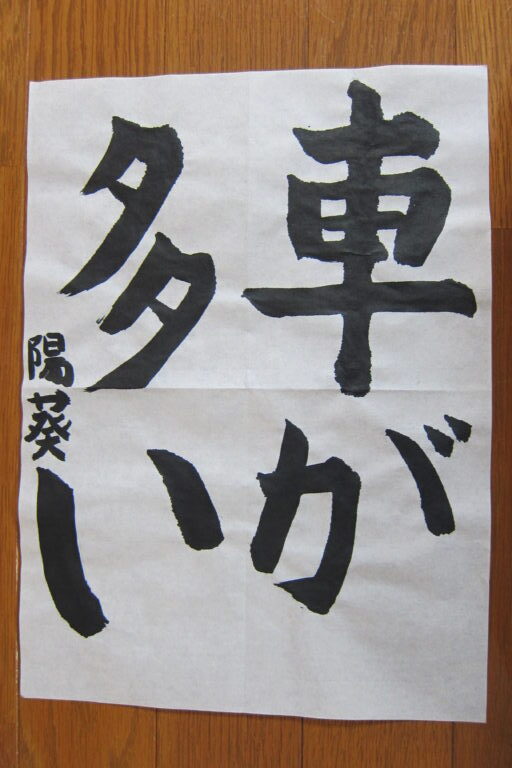 車が
多い
陽葵